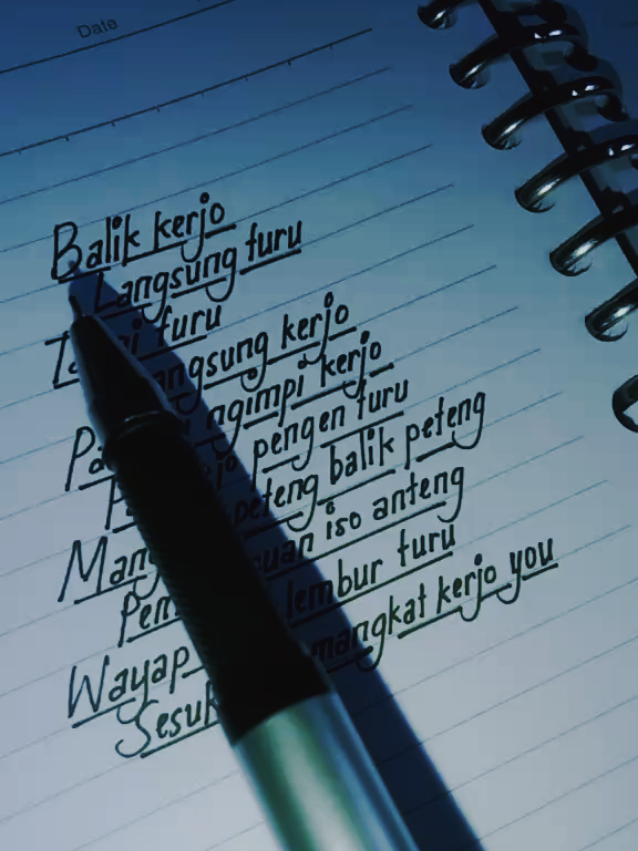 Date
Balik kerjo
Langsung turu
turu
Langsung kerjo
ngimpi kerjo
pengen turu
peteng balik peteng
iso anteng
lembur turu
Sesuk mangkat kerjo you